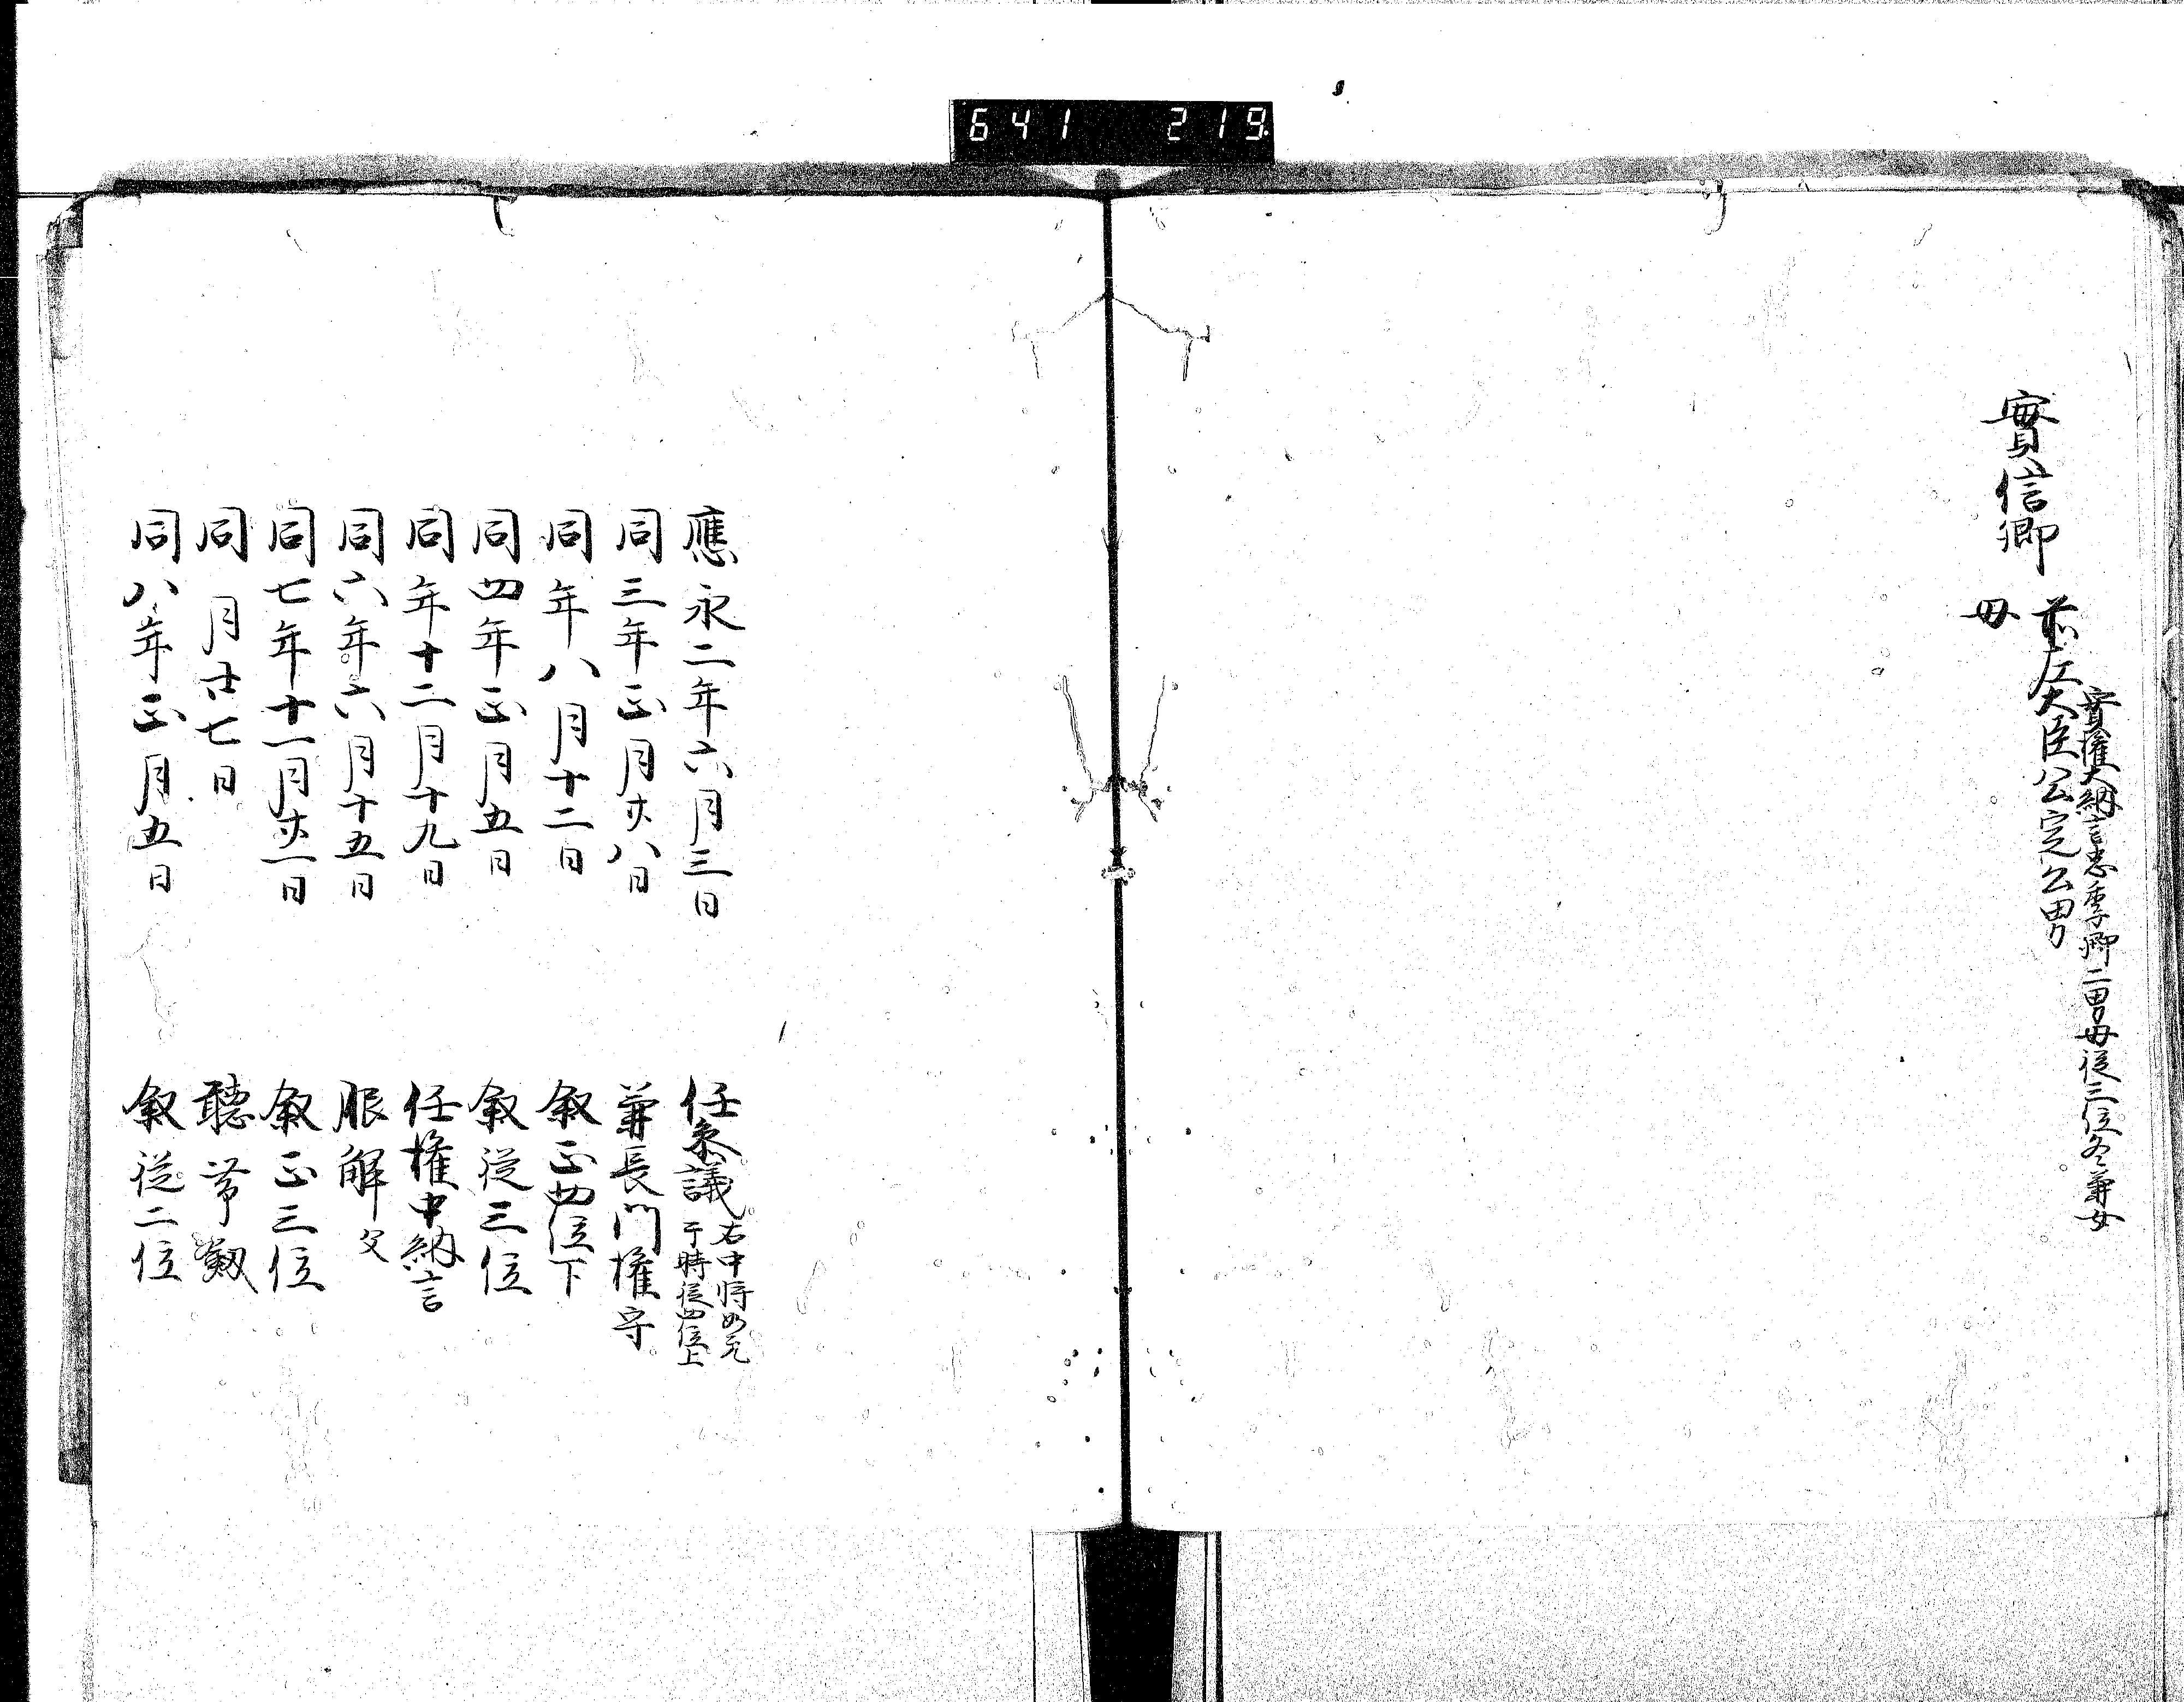 641 219
實信卿
實權大納言忠季卿二男母從三位冬兼女
前左大臣公定公男
母
應永二年六月三日 任參議 右中將如元 于時從四位上
同三年正月廿八日 兼長門權守
同年八月十二日 敘正四位下
同四年正月五日 敘從三位
同年十二月十九日 任權中納言
同六年六月十五日 服解父
同七年十一月廿一日 敘正三位
同月廿七日 聽帶劔
同八年正月五日 敘從二位